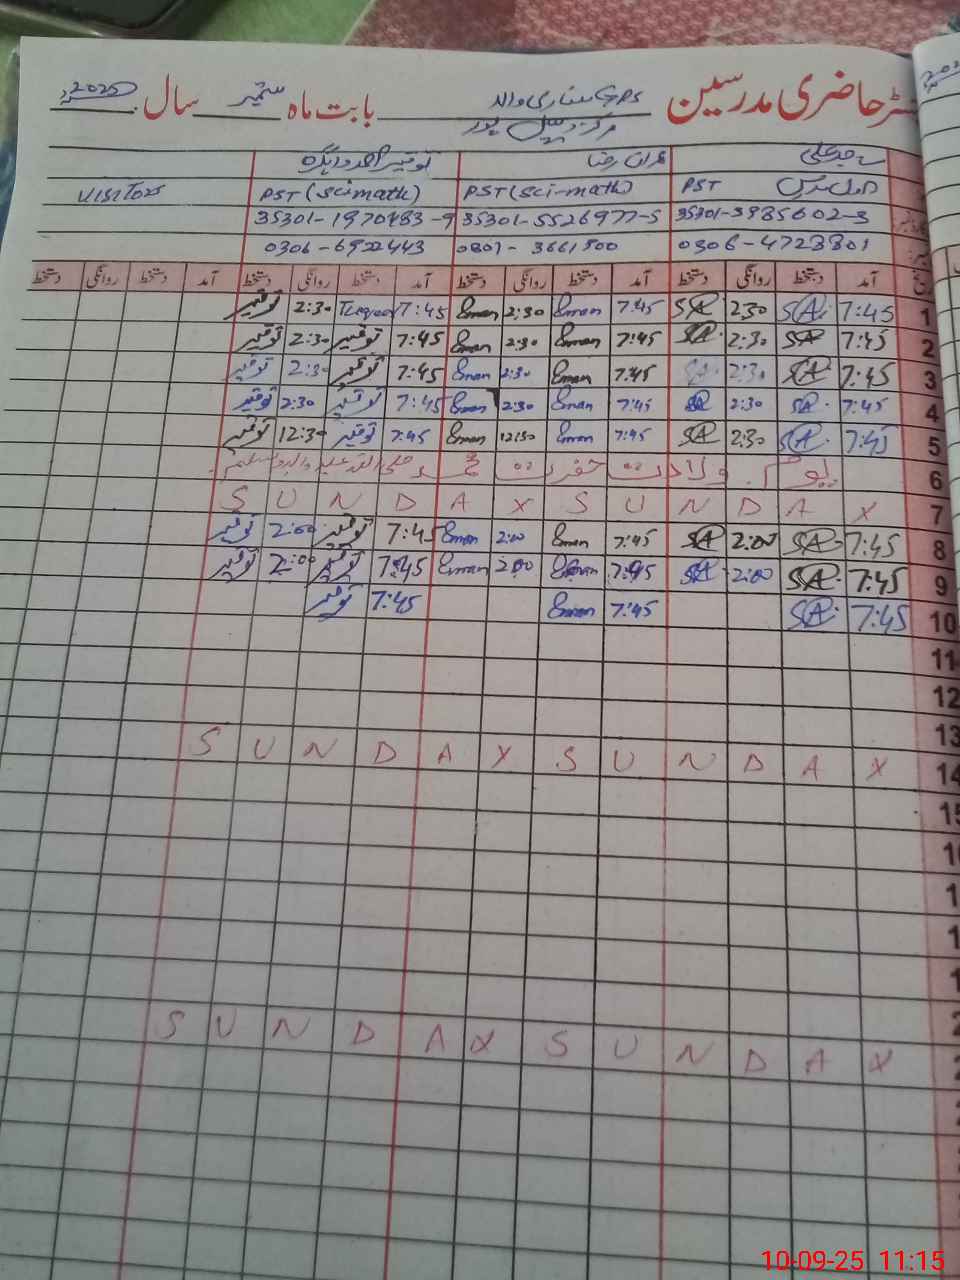 رجسٹر حاضری مدرسین GPS بابت ماہ ستمبر سال 2025ء
ساجد علی عمران رضا توقیر احمد
PST PST (Sci-math) PST (Sci math) VISITOR
35301-3985602-3 35301-5526977-5 35301-1970483-9
0306-4723801 0301-3661500 0306-6922443
آمد دستخط روانگی دستخط آمد دستخط روانگی دستخط آمد دستخط روانگی دستخط آمد دستخط روانگی دستخط
1 7:45 SA 2:30 SA 7:45 Eman 2:30 Eman 7:45 Tuqeer 2:30 توقیر
2 7:45 SA 2:30 SA 7:45 Eman 2:30 Eman 7:45 توقیر 2:30 توقیر
3 7:45 SA 2:30 SA 7:45 Eman 2:30 Eman 7:45 توقیر 2:30 توقیر
4 7:45 SA 2:30 SA 7:45 Eman 2:30 Eman 7:45 توقیر 2:30 توقیر
5 7:45 SA 2:30 SA 7:45 Eman 12:30 Eman 7:45 توقیر 12:30 توقیر
6 یوم ولادت حضرت محمد صلی اللہ علیہ والہ وسلم
7 S U N D A Y S U N D A Y
8 7:45 SA 2:00 SA 7:45 Eman 2:00 Eman 7:45 توقیر 2:00 توقیر
9 7:45 SA 2:00 SA 7:45 Eman 2:00 Eman 7:45 توقیر 2:00 توقیر
10 7:45 SA 7:45 Eman 7:45 توقیر
11
12
13
14 S U N D A Y S U N D A Y
15
S U N D A Y S U N D A Y
10-09-25 11:15